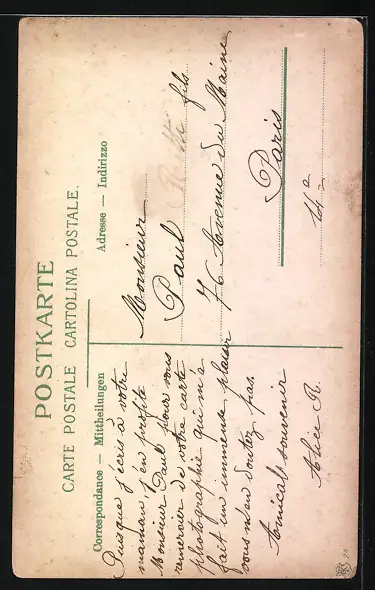 POSTKARTE
CARTE POSTALE CARTOLINA POSTALE.
Correspondance — Mittheilungen
Adresse — Indirizzo
Puisque j'écris à votre
maman, j'en profite
Monsieur Paul pour vous
remercier de votre carte
photographie qui m'a
fait un immense plaisir
vous n'en doutez pas.
Amical souvenir
Alice R.
Monsieur
Paul fils
76 Avenue du Maine
Paris
14e